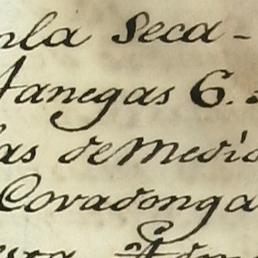 nla Seca-
fanegas 6.
as de Medid
Covadonga